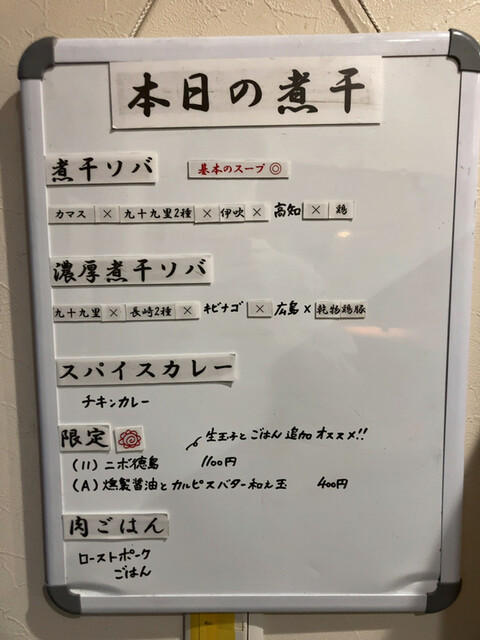 本日の煮干
煮干ソバ 基本のスープ◎
カマス × 九十九里2種 × 伊吹 × 高知 × 鶏
濃厚煮干ソバ
九十九里 × 長崎2種 × キビナゴ × 広島 × 乾物鶏豚
スパイスカレー
チキンカレー
限定 生玉子とごはん追加オススメ!!
(11) ニボ徳島 1100円
(A) 燻製醤油とカルピスバター和え玉 400円
肉ごはん
ローストポーク
ごはん